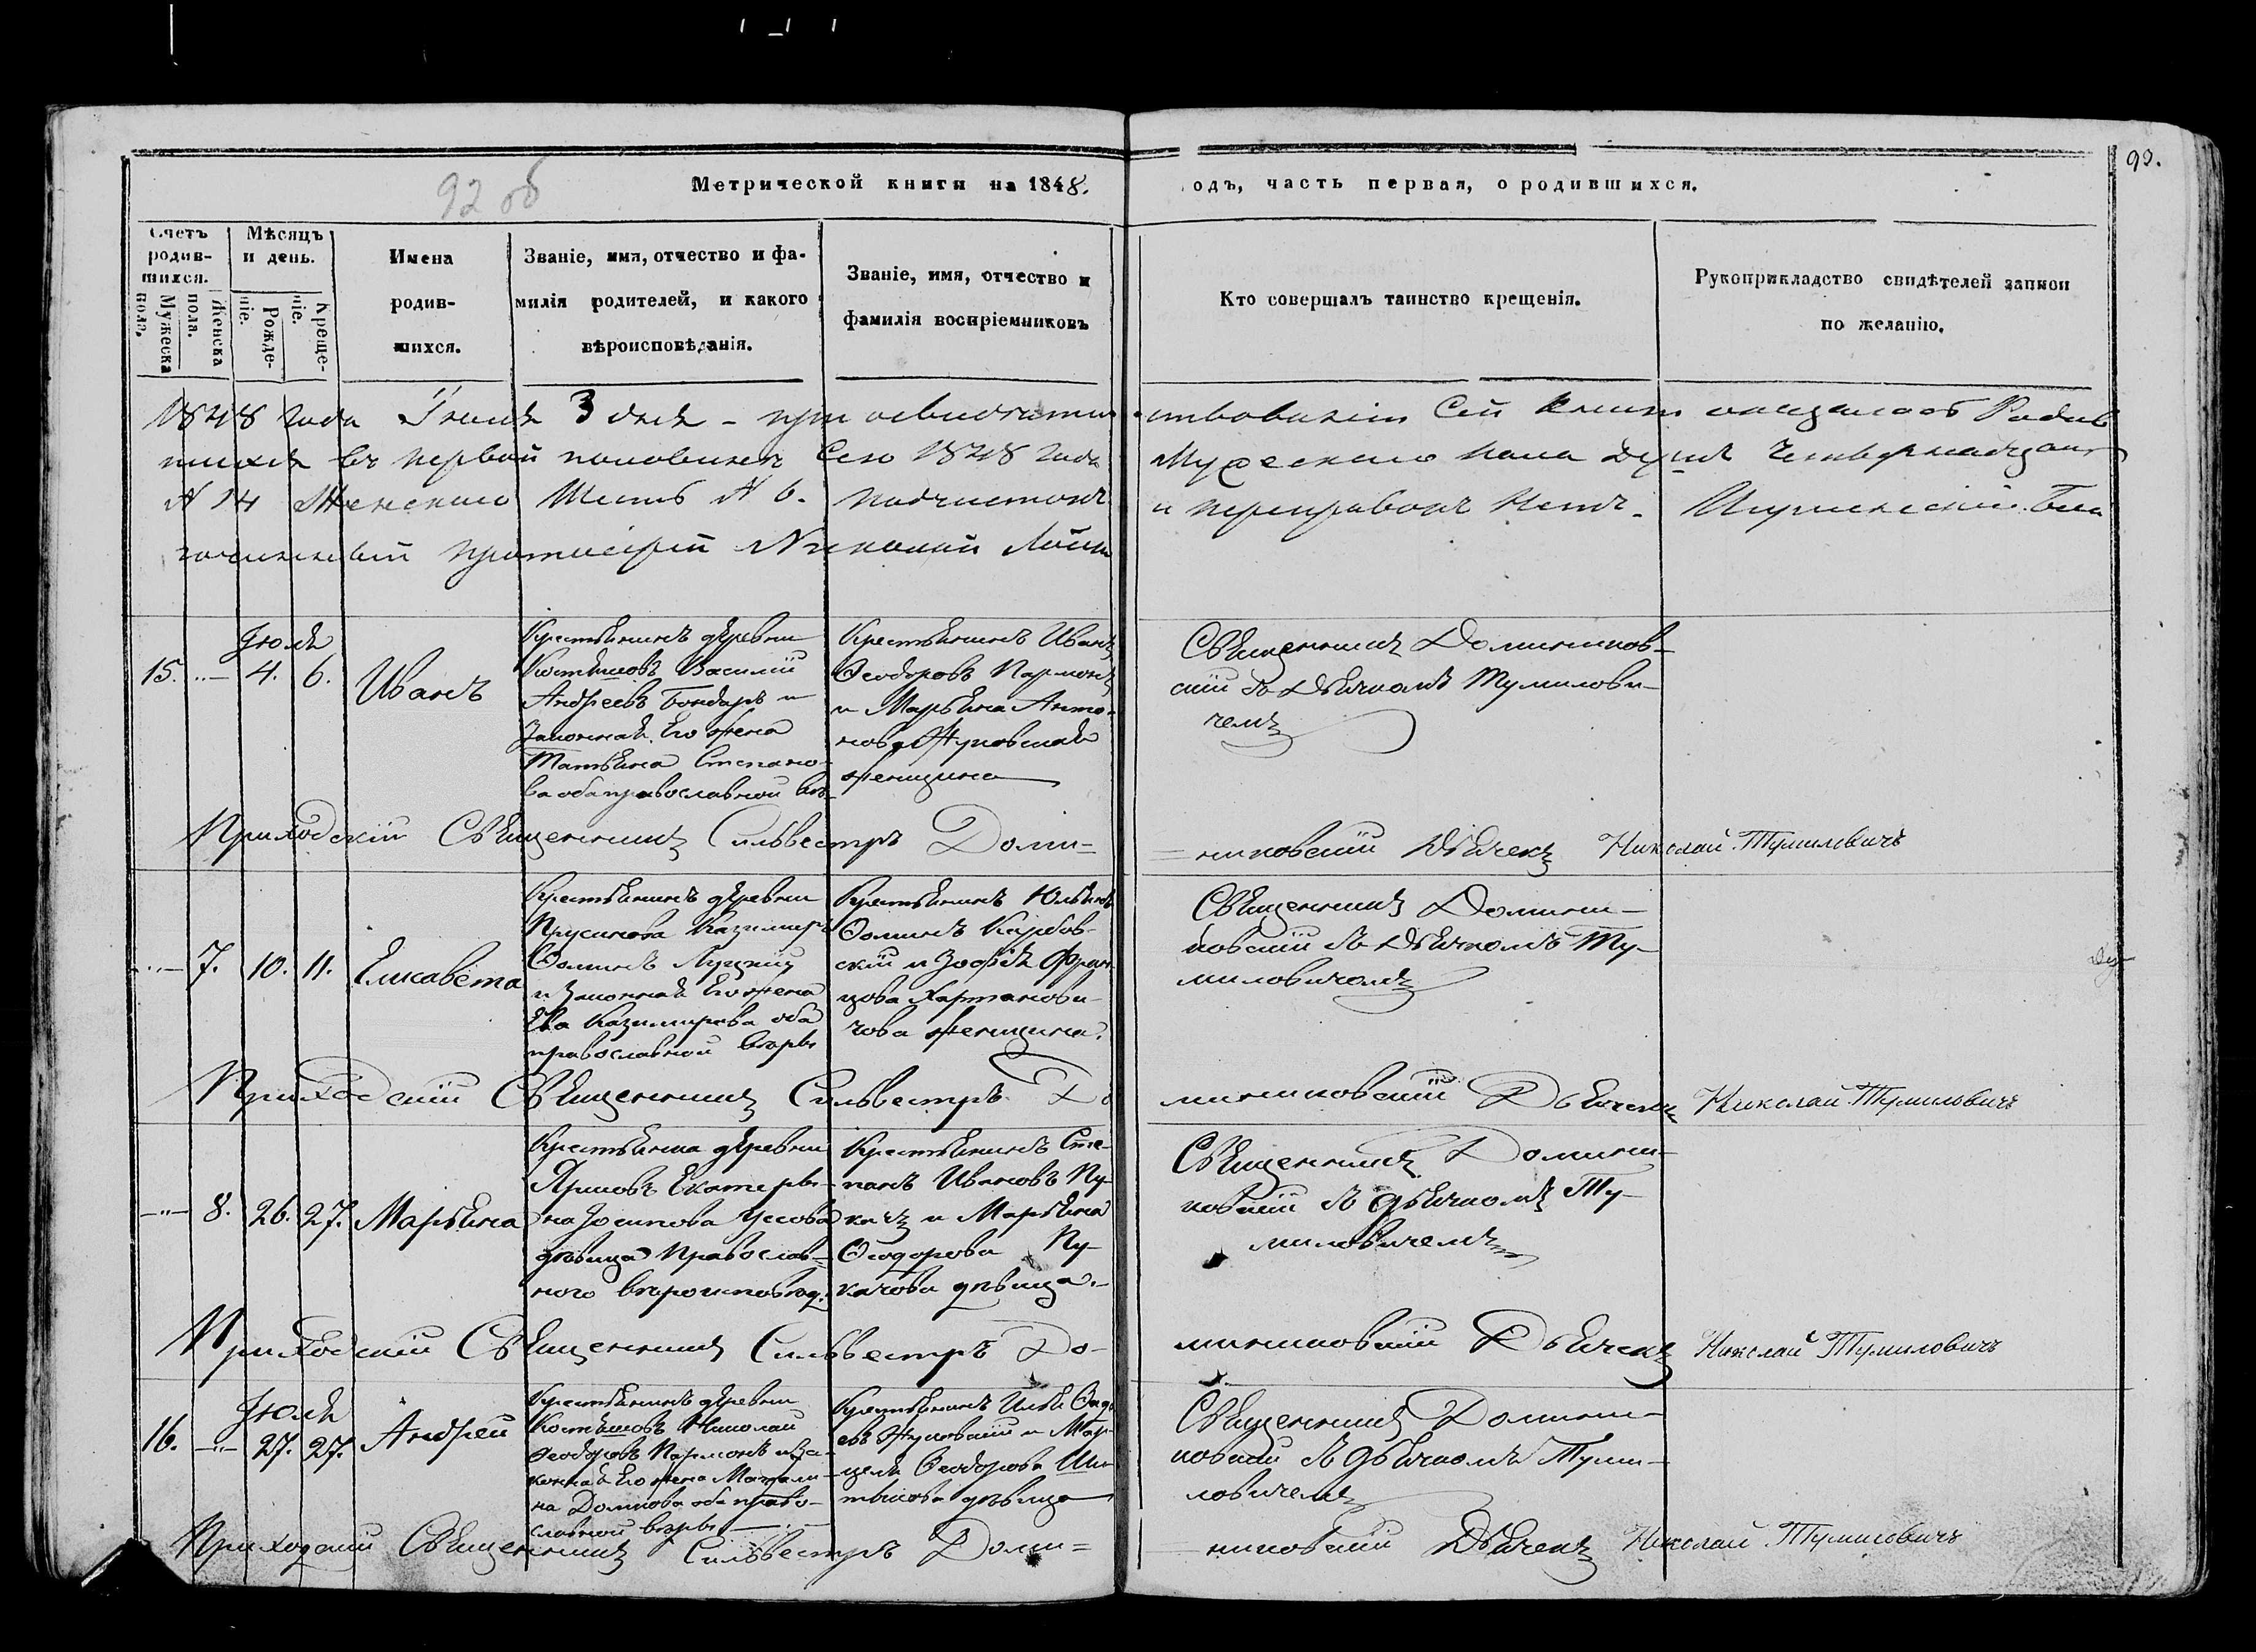 92 об
93.
Метрической книги на 1848. годъ, часть первая, о родившихся.
Счетъ родившихся.
Мужеска пола.
Женска пола.
Мѣсяцъ и день.
Рожденіе.
Крещеніе.
Имена
родив-
шихся.
Званіе, имя, отчество и фа-
милія родителей, и какого
вѣроисповѣданія.
Званіе, имя, отчество и
фамилія воспріемниковъ
Кто совершалъ таинство крещенія.
Рукоприкладство свидѣтелей записи
по желанію.
1848 года 3 дня - при освидѣтель-ствованіи сей книги оказалось Родив
шихся въ первой половинѣ сего 1848 года Мужескаго пола душъ четырнадцать
N 14 Женскаго Шесть N 6. подчистокъ и переправокъ нѣтъ. Игуменскій Бла
гочинный протоіерей Николай
Іюля
15. 4. 6.
Иванъ
Крестьянинъ деревни
Василій
Андреевъ Бондарь и
Законная Его жена
Татьяна Степано-
ва оба православной вѣ-
Крестьянинъ Иванъ
Ѳеодоровъ Пармонъ
и Марьяна Анто-
нова Жуковская
женщина
Священникъ Домиников-
скій съ Дьячкомъ Тумилови-
чемъ
Приходскій Священникъ Сильвестръ Доми-
-никовскій Дьячекъ Николай Тумиловичъ
7. 10. 11.
Елисавета
Крестьянинъ деревни
Прусинова Казимиръ
Ѳоминъ Луцкій
и Законная Его жена
Ева Казимирова оба
православной вѣры
Крестьянинъ Юльянъ
Ѳоминъ
скій и Зофія Фран-
цова Хартанови-
чова женщина.
Священникъ Домини-
ковскій съ Дьячкомъ Ту-
миловичемъ
Приходскій Священникъ Сильвестръ До
миниковскій Дьячекъ Николай Тумиловичъ
8. 26. 27.
Марьяна
Крестьянка деревни
Екатери-
на Іосипова Усова
дѣвица Православ-
наго вѣроисповѣд:
Крестьянинъ Сте-
панъ Ивановъ Пу-
качъ и Марьяна
Ѳеодорова Пу-
качова дѣвица.
Священникъ Домини-
ковскій съ дьячкомъ Ту-
миловичемъ
Приходскій Священникъ Сильвестръ До-
миниковскій Дьячекъ Николай Тумиловичъ
Іюля
16. 27. 27.
Андрей
Крестьянинъ деревни
Николай
Ѳеодоровъ Пармонъ и За-
конная Его жена Магдали-
на Доминова оба право-
славной вѣры
Крестьянинъ Илья
евъ Жуковскій и Мар-
целя Ѳеодорова
дѣвица
Священникъ Домини-
ковскій съ дьячкомъ Туми-
ловичемъ
Приходскій Священникъ Сильвестръ Доми-
-никовскій Дьячекъ Николай Тумиловичъ